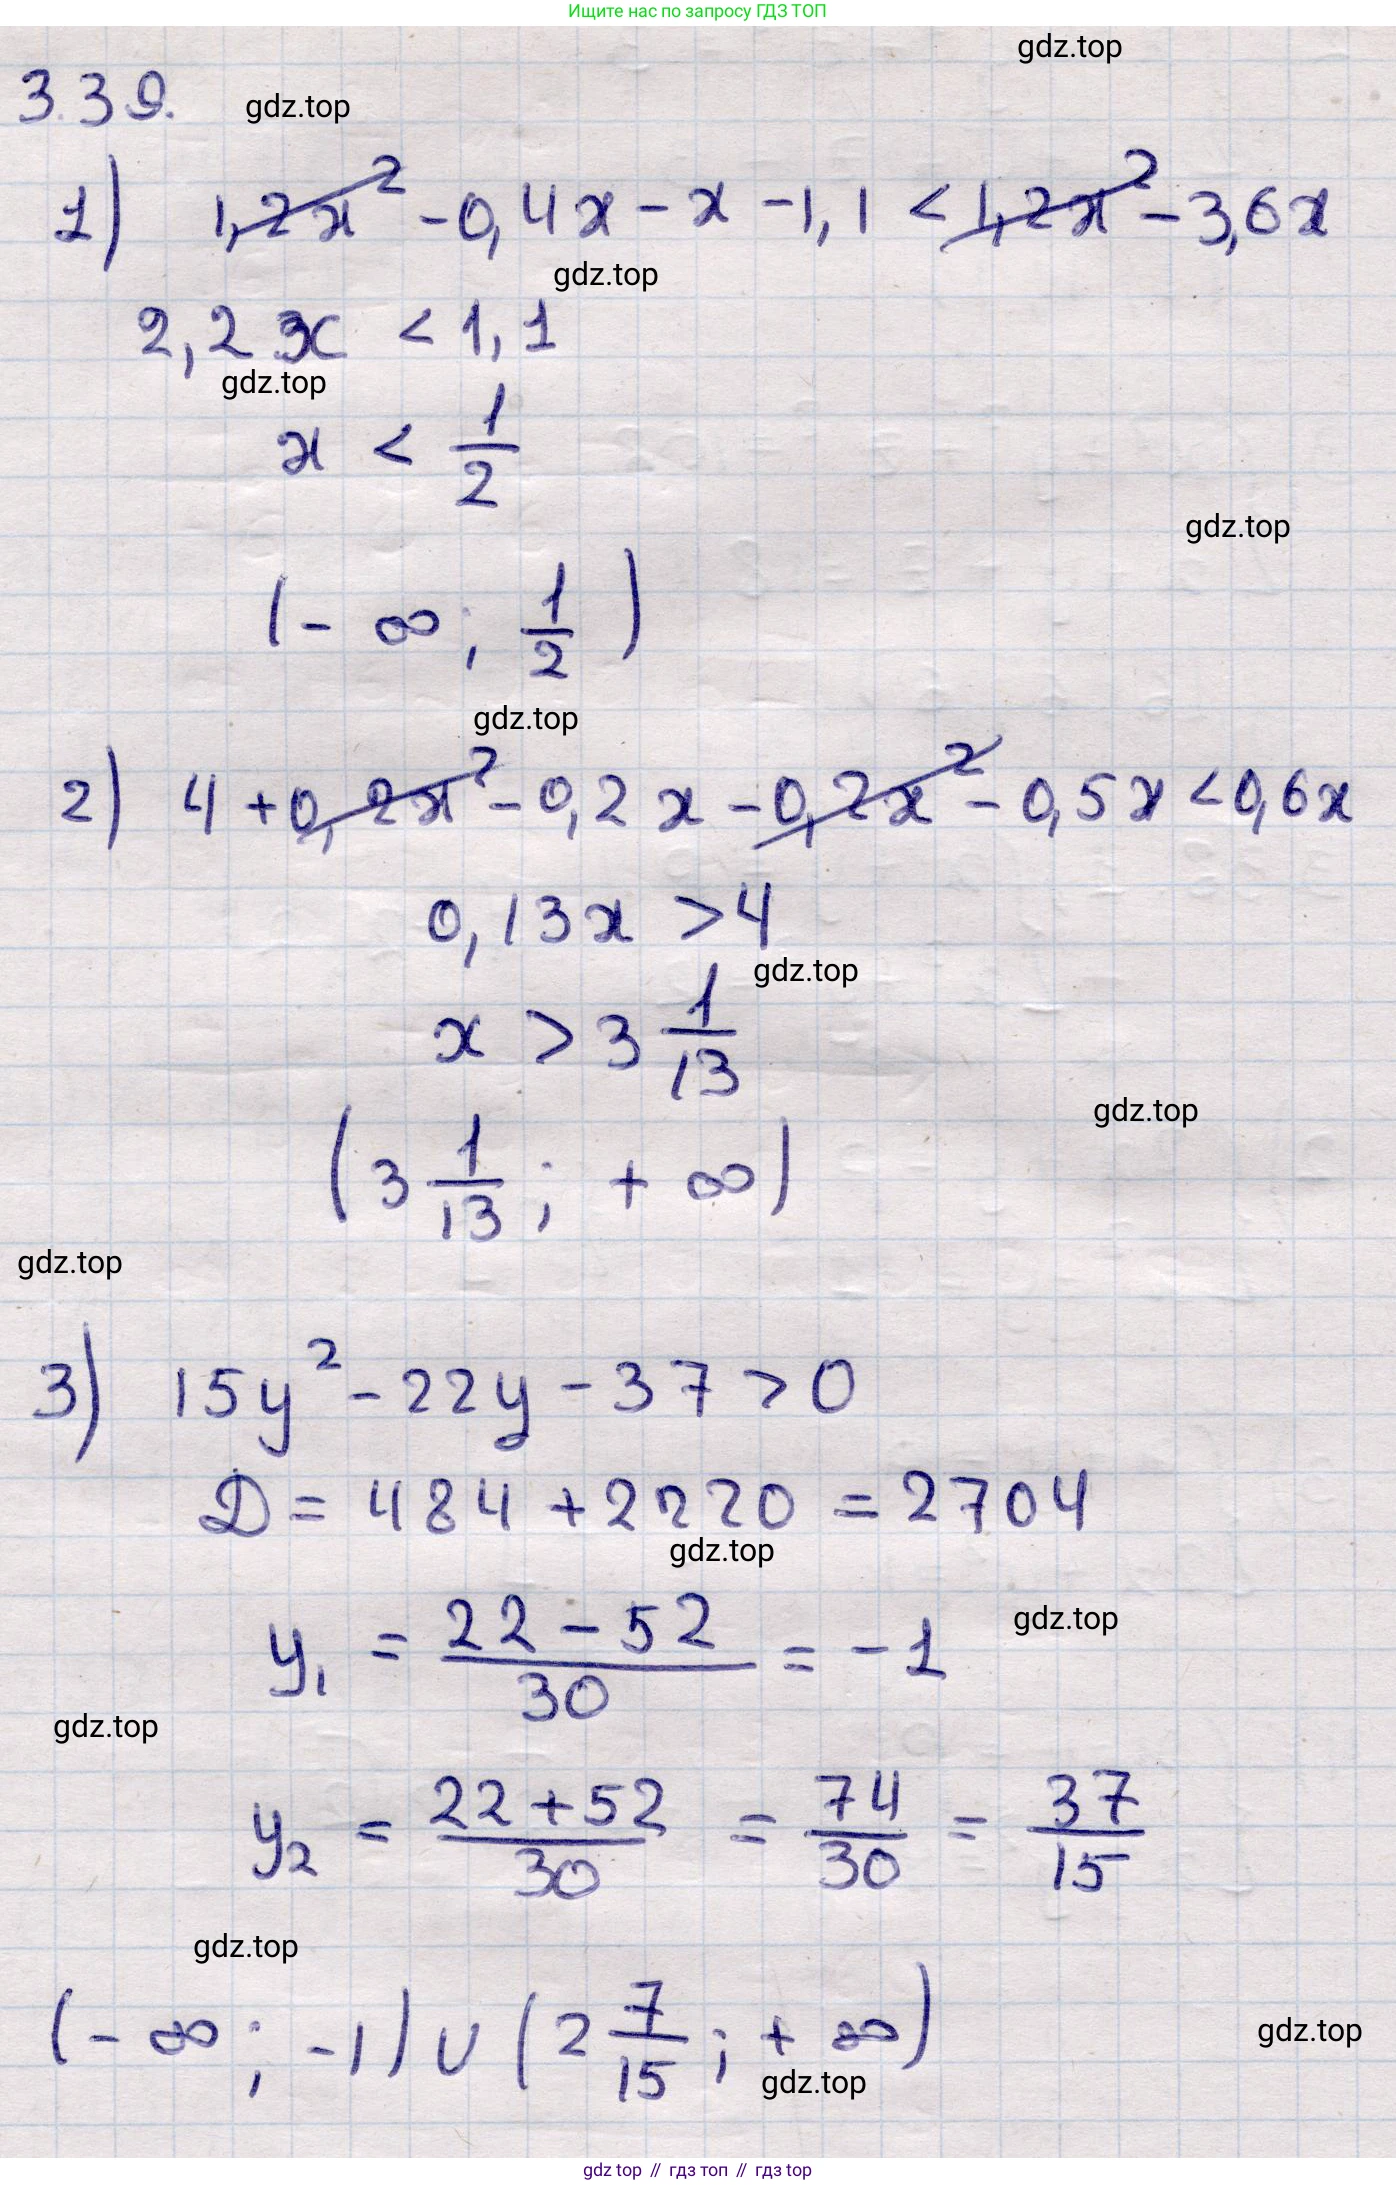 Ищите нас по запросу ГДЗ ТОП
gdz.top
3.39.
gdz.top
1) 1,2x² - 0,4x - x - 1,1 < 1,2x² - 3,6x
gdz.top
2,2x < 1,1
gdz.top
x < 1/2
gdz.top
(-∞; 1/2)
gdz.top
2) 4 + 0,2x² - 0,2x - 0,2x² - 0,5x < 0,6x
0,13x > 4
gdz.top
x > 3 1/13
gdz.top
(3 1/13; +∞)
gdz.top
3) 15y² - 22y - 37 > 0
D = 484 + 2220 = 2704
gdz.top
gdz.top
y₁ = (22 - 52)/30 = -1
gdz.top
y₂ = (22 + 52)/30 = 74/30 = 37/15
gdz.top
(-∞; -1) ∪ (2 7/15; +∞)
gdz.top
gdz.top
gdz top // гдз топ // гдз top